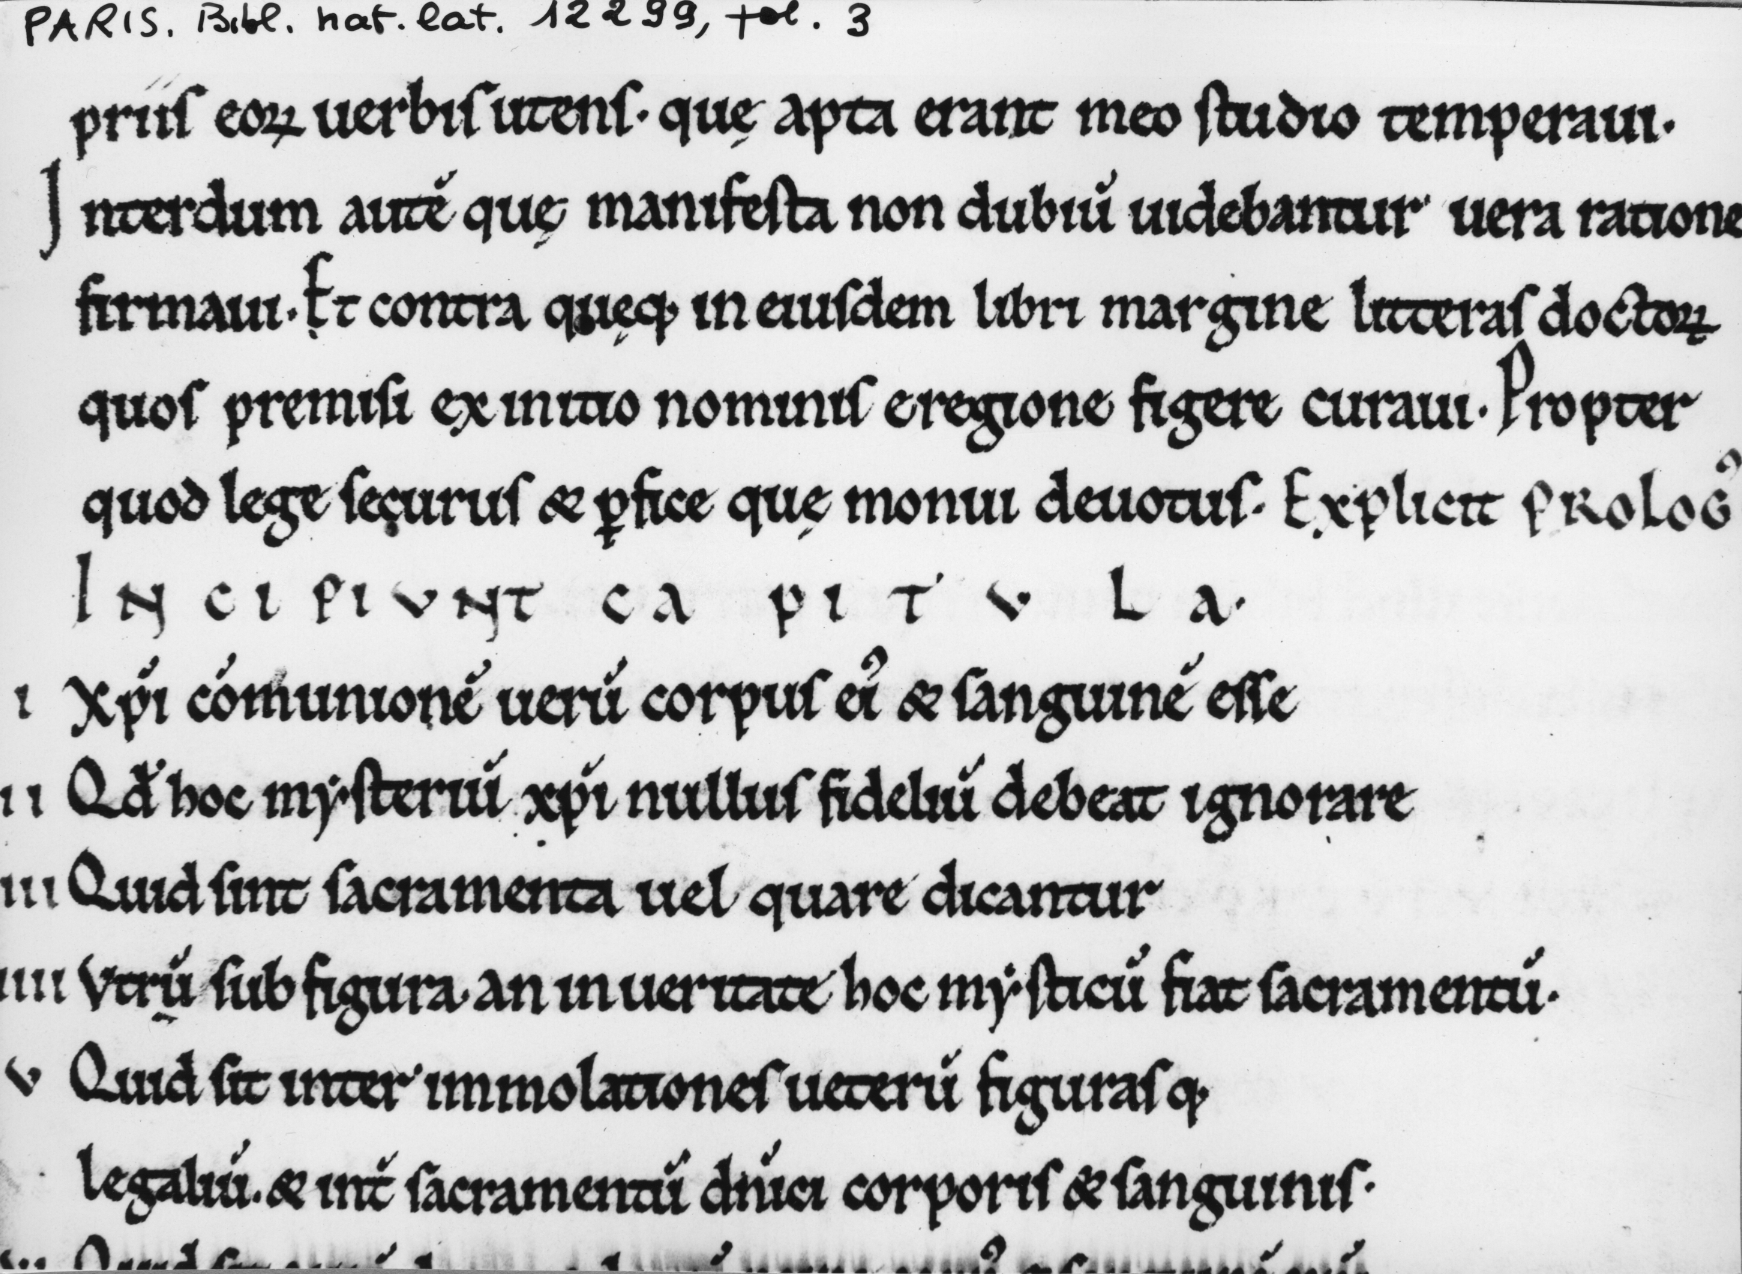 PARIS. Bibl. nat. lat. 12299, fol. 3
priis eoꝝ uerbis utens· quę apta erant meo studio temperaui·
Interdum autē quę manifesta non dubiū uidebantur uera ratione
firmaui· Et contra quęq; in eiusdem libri margine litteras doctoꝝ
quos premisi ex initio nominis e regione figere curaui· Propter
quod lege securus & ꝑfice quę monui deuotus· Explicit PROLOGꝰ
INCIPIVNT CAPITVLA·
i xp̄i cōmunionē uerū corpus eiꝰ & sanguinē esse
ii Qđ hoc mẏsteriū xp̄i nullus fideliū debeat ignorare
iii Quid sint sacramenta uel quare dicantur
iiii Vtrū sub figura an in ueritate hoc mẏsticū fiat sacramentū·
v Quid sit inter immolationes ueterū figurasq;
legaliū· & int̄ sacramentū dn̄ici corporis & sanguinis·